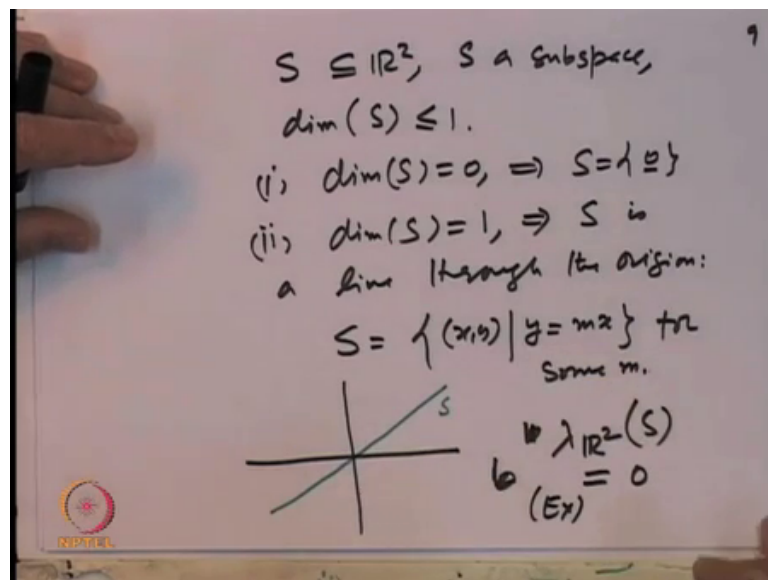 9
S ⊆ ℝ², S a subspace,
dim(S) ≤ 1.
(i) dim(S) = 0, ⇒ S = {0}
(ii) dim(S) = 1, ⇒ S is
a line through the origin:
S = {(x,y) | y = mx} for
some m.
S
λ_ℝ²(S)
= 0
(Ex)
NPTEL